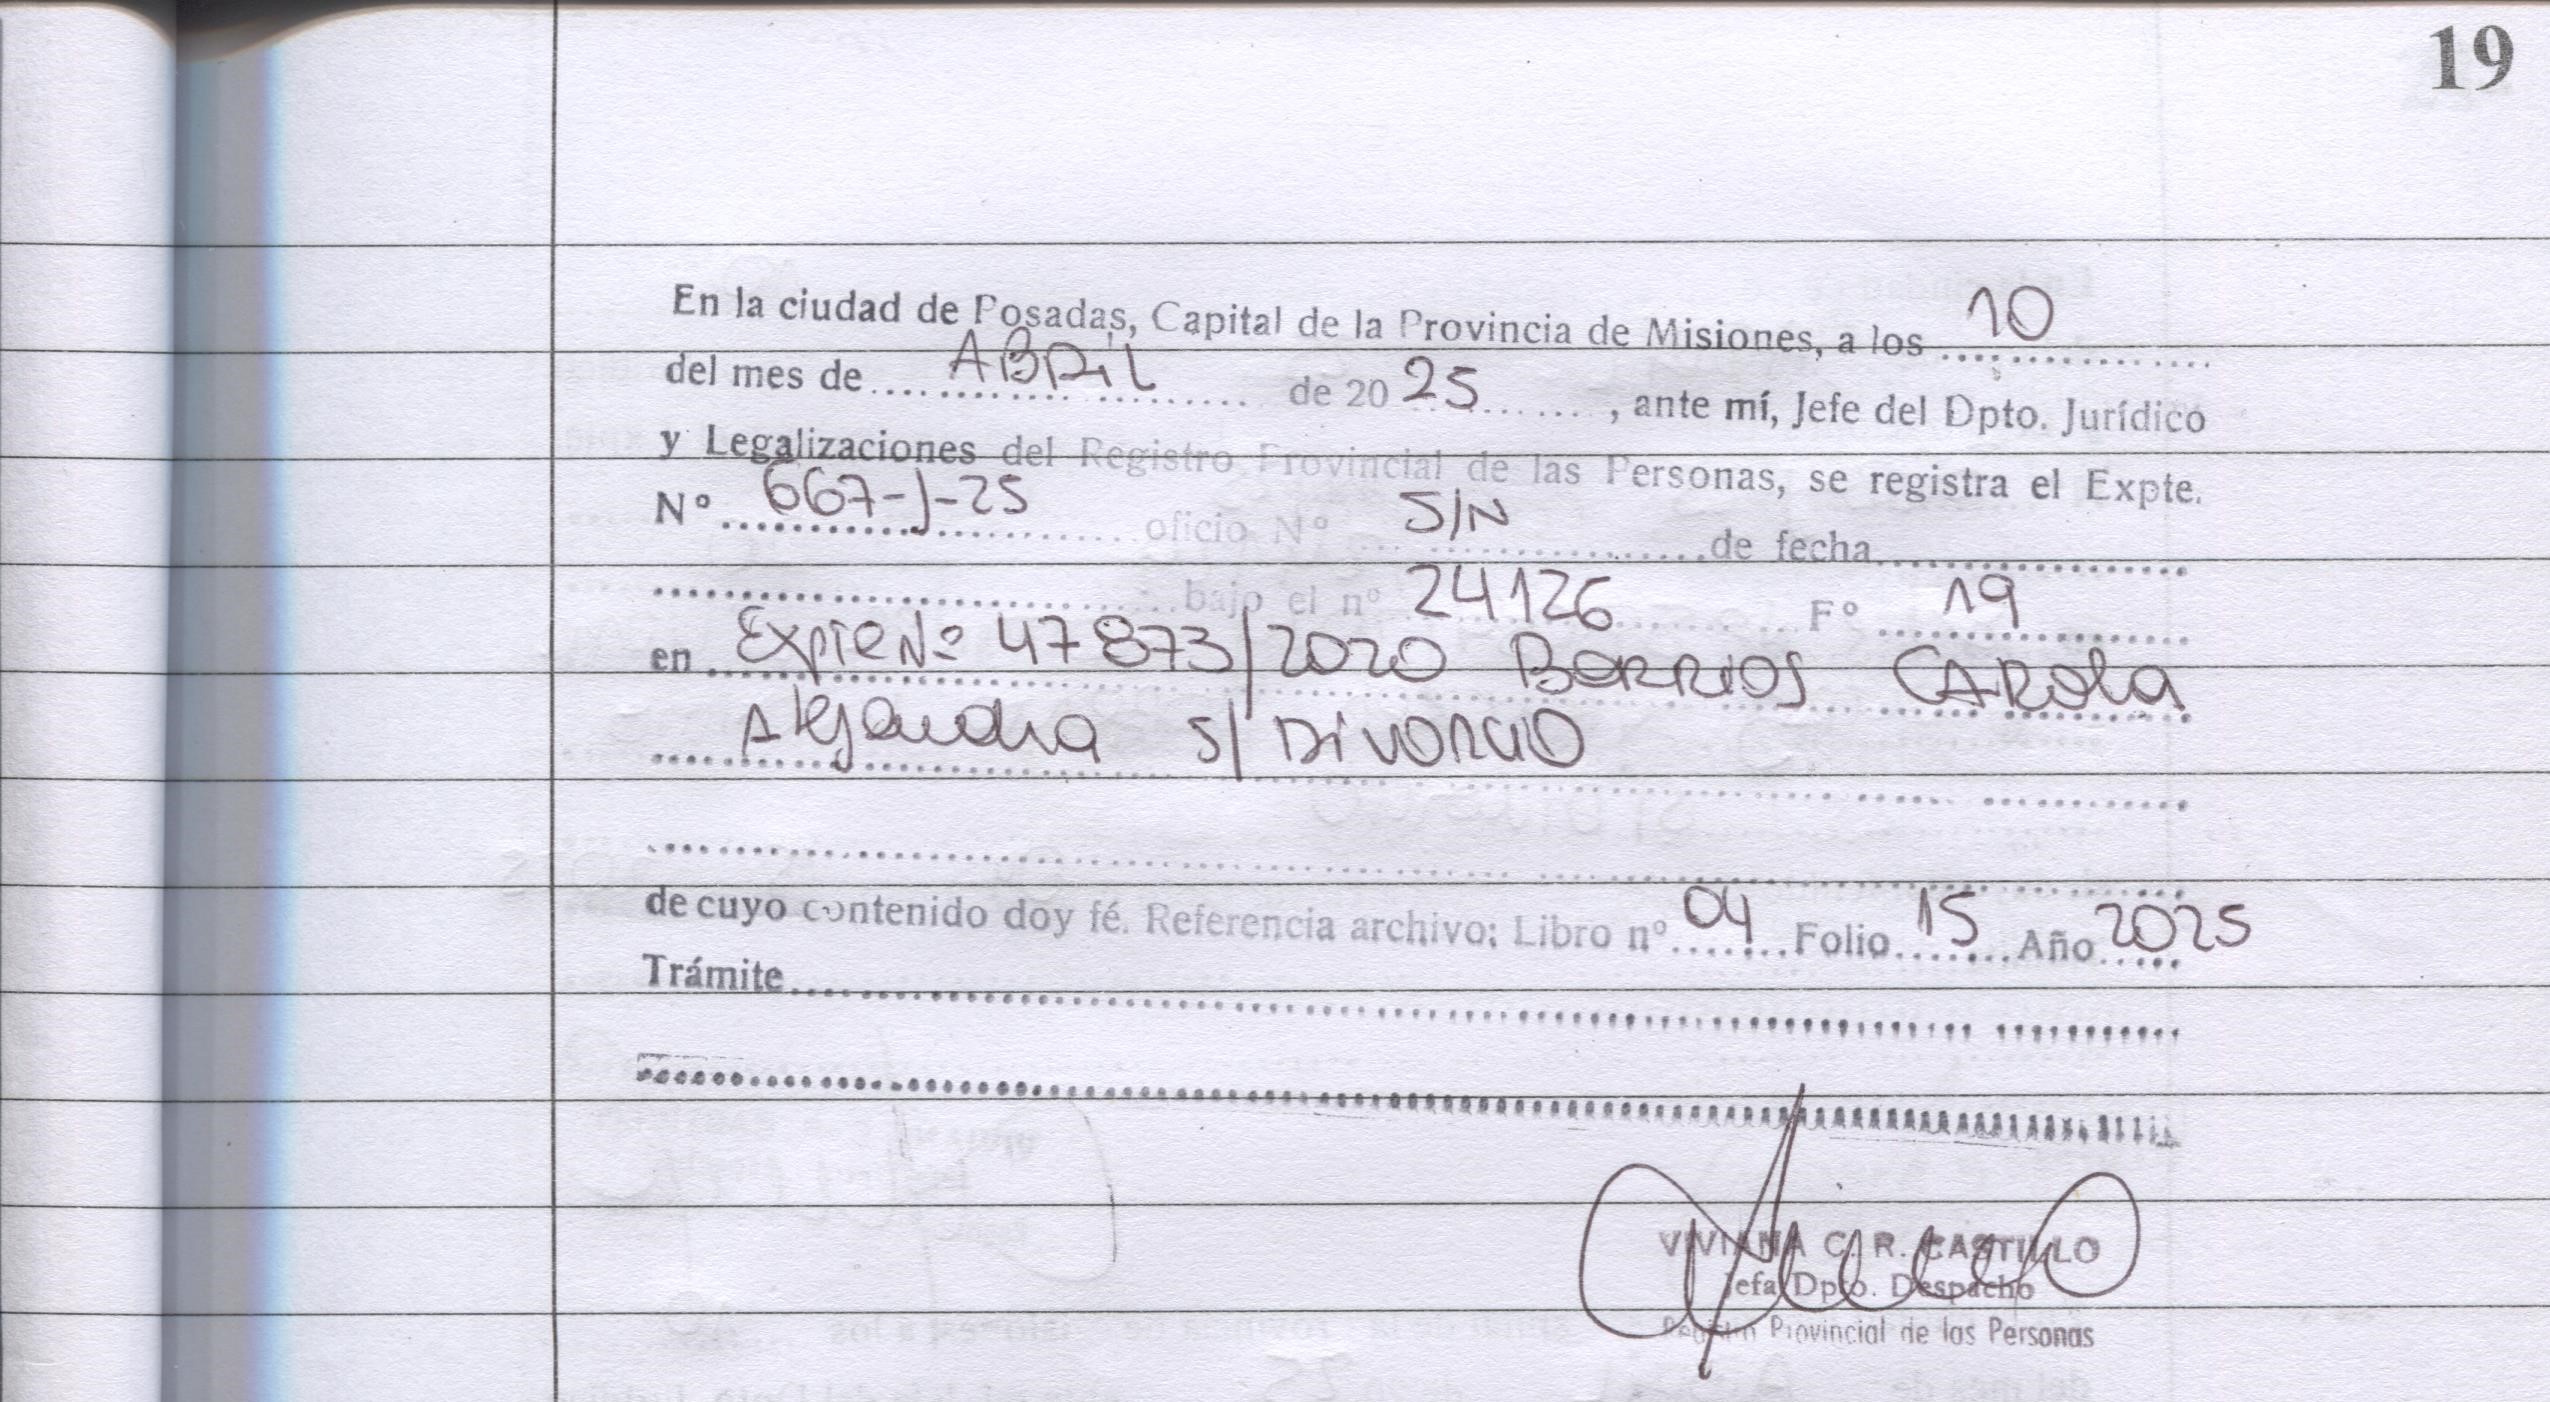 19
En la ciudad de Posadas, Capital de la Provincia de Misiones, a los 10
del mes de ABRIL de 2025, ante mí, Jefe del Dpto. Jurídico
y Legalizaciones del Registro Provincial de las Personas, se registra el Expte.
Nº 667-J-25 oficio Nº S/N de fecha
bajo el nº 24126 Fº 19
en Expte Nº 47873/2020 BERRIOS CAROLA
Alejandra S/ DIVORCIO
de cuyo contenido doy fé. Referencia archivo: Libro nº 04 Folio 15 Año 2025
Trámite
VIVIANA C. R. CASTILLO
Jefa Dpto. Despacho
Registro Provincial de las Personas